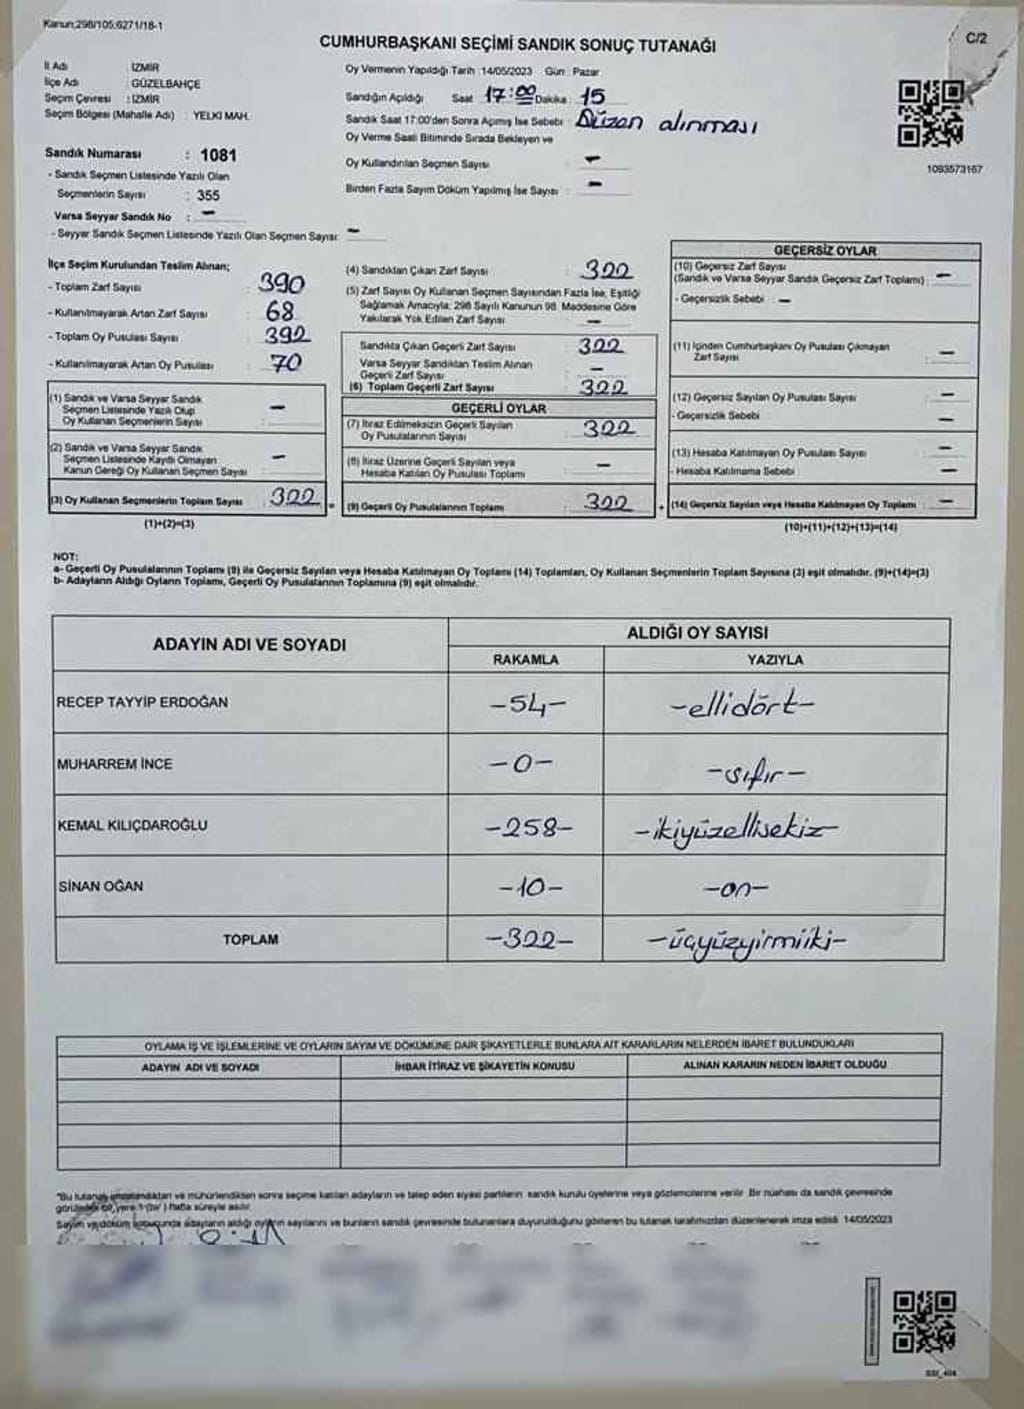 Kanun:298/105;6271/18-1
C/2
CUMHURBAŞKANI SEÇİMİ SANDIK SONUÇ TUTANAĞI
İl Adı : İZMİR
İlçe Adı : GÜZELBAHÇE
Seçim Çevresi : İZMİR
Seçim Bölgesi (Mahalle Adı) : YELKİ MAH.
Sandık Numarası : 1081
- Sandık Seçmen Listesinde Yazılı Olan
Seçmenlerin Sayısı : 355
Varsa Seyyar Sandık No : -
- Seyyar Sandık Seçmen Listesinde Yazılı Olan Seçmen Sayısı: -
Oy Vermenin Yapıldığı Tarih :14/05/2023 Gün : Pazar
Sandığın Açıldığı Saat 17:00 Dakika : 15
Sandık Saat 17:00'den Sonra Açımış İse Sebebi : Düzen alınması
Oy Verme Saati Bitiminde Sırada Bekleyen ve
Oy Kullandırılan Seçmen Sayısı : -
Birden Fazla Sayım Döküm Yapılmış İse Sayısı : -
1093573167
İlçe Seçim Kurulundan Teslim Alınan;
- Toplam Zarf Sayısı : 390
- Kullanılmayarak Artan Zarf Sayısı : 68
- Toplam Oy Pusulası Sayısı : 392
- Kullanılmayarak Artan Oy Pusulası : 70
(1) Sandık ve Varsa Seyyar Sandık
Seçmen Listesinde Yazılı Olup
Oy Kullanan Seçmenlerin Sayısı : -
(2) Sandık ve Varsa Seyyar Sandık
Seçmen Listesinde Kayıtlı Olmayan
Kanun Gereği Oy Kullanan Seçmen Sayısı : -
(3) Oy Kullanan Seçmenlerin Toplam Sayısı : 322
(1)+(2)=(3)
(4) Sandıktan Çıkan Zarf Sayısı : 322
(5) Zarf Sayısı Oy Kullanan Seçmen Sayısından Fazla İse, Eşitliği
Sağlamak Amacıyla; 298 Sayılı Kanunun 98. Maddesine Göre
Yakılarak Yok Edilen Zarf Sayısı : -
Sandıkta Çıkan Geçerli Zarf Sayısı : 322
Varsa Seyyar Sandıktan Teslim Alınan
Geçerli Zarf Sayısı : -
(6) Toplam Geçerli Zarf Sayısı : 322
GEÇERLİ OYLAR
(7) İtiraz Edilmeksizin Geçerli Sayılan
Oy Pusulalarının Sayısı : 322
(8) İtiraz Üzerine Geçerli Sayılan veya
Hesaba Katılan Oy Pusulası Toplamı : -
= (9) Geçerli Oy Pusulalarının Toplamı : 322
GEÇERSİZ OYLAR
(10) Geçersiz Zarf Sayısı
(Sandık ve Varsa Seyyar Sandık Geçersiz Zarf Toplamı) : -
- Geçersizlik Sebebi : -
(11) İçinden Cumhurbaşkanı Oy Pusulası Çıkmayan
Zarf Sayısı : -
(12) Geçersiz Sayılan Oy Pusulası Sayısı : -
- Geçersizlik Sebebi : -
(13) Hesaba Katılmayan Oy Pusulası Sayısı : -
- Hesaba Katılmama Sebebi : -
+ (14) Geçersiz Sayılan veya Hesaba Katılmayan Oy Toplamı : -
(10)+(11)+(12)+(13)=(14)
NOT:
a- Geçerli Oy Pusulalarının Toplamı (9) ile Geçersiz Sayılan veya Hesaba Katılmayan Oy Toplamı (14) Toplamları, Oy Kullanan Seçmenlerin Toplam Sayısına (3) eşit olmalıdır. (9)+(14)=(3)
b- Adayların Aldığı Oyların Toplamı, Geçerli Oy Pusulalarının Toplamına (9) eşit olmalıdır.
ADAYIN ADI VE SOYADI
ALDIĞI OY SAYISI
RAKAMLA YAZIYLA
RECEP TAYYİP ERDOĞAN -54- -ellidört-
MUHARREM İNCE -0- -sıfır-
KEMAL KILIÇDAROĞLU -258- -ikiyüzellisekiz-
SİNAN OĞAN -10- -on-
TOPLAM -322- -üçyüzyirmiiki-
OYLAMA İŞ VE İŞLEMLERİNE VE OYLARIN SAYIM VE DÖKÜMÜNE DAİR ŞİKAYETLERLE BUNLARA AİT KARARLARIN NELERDEN İBARET BULUNDUKLARI
ADAYIN ADI VE SOYADI İHBAR İTİRAZ VE ŞİKAYETİN KONUSU ALINAN KARARIN NEDEN İBARET OLDUĞU
*Bu tutanak imzalandıktan ve mühürlendikten sonra seçime katılan adayların ve talep eden siyasi partilerin sandık kurulu üyelerine veya gözlemcilerine verilir. Bir nüshası da sandık çevresinde
görülebilir bir yere 1 (bir) hafta süreyle asılır.
Sayım ve döküm sonucunda adayların aldığı oyların sayılarını ve bunların sandık çevresinde bulunanlara duyurulduğunu gösteren bu tutanak tarafımızdan düzenlenerek imza edildi. 14/05/2023